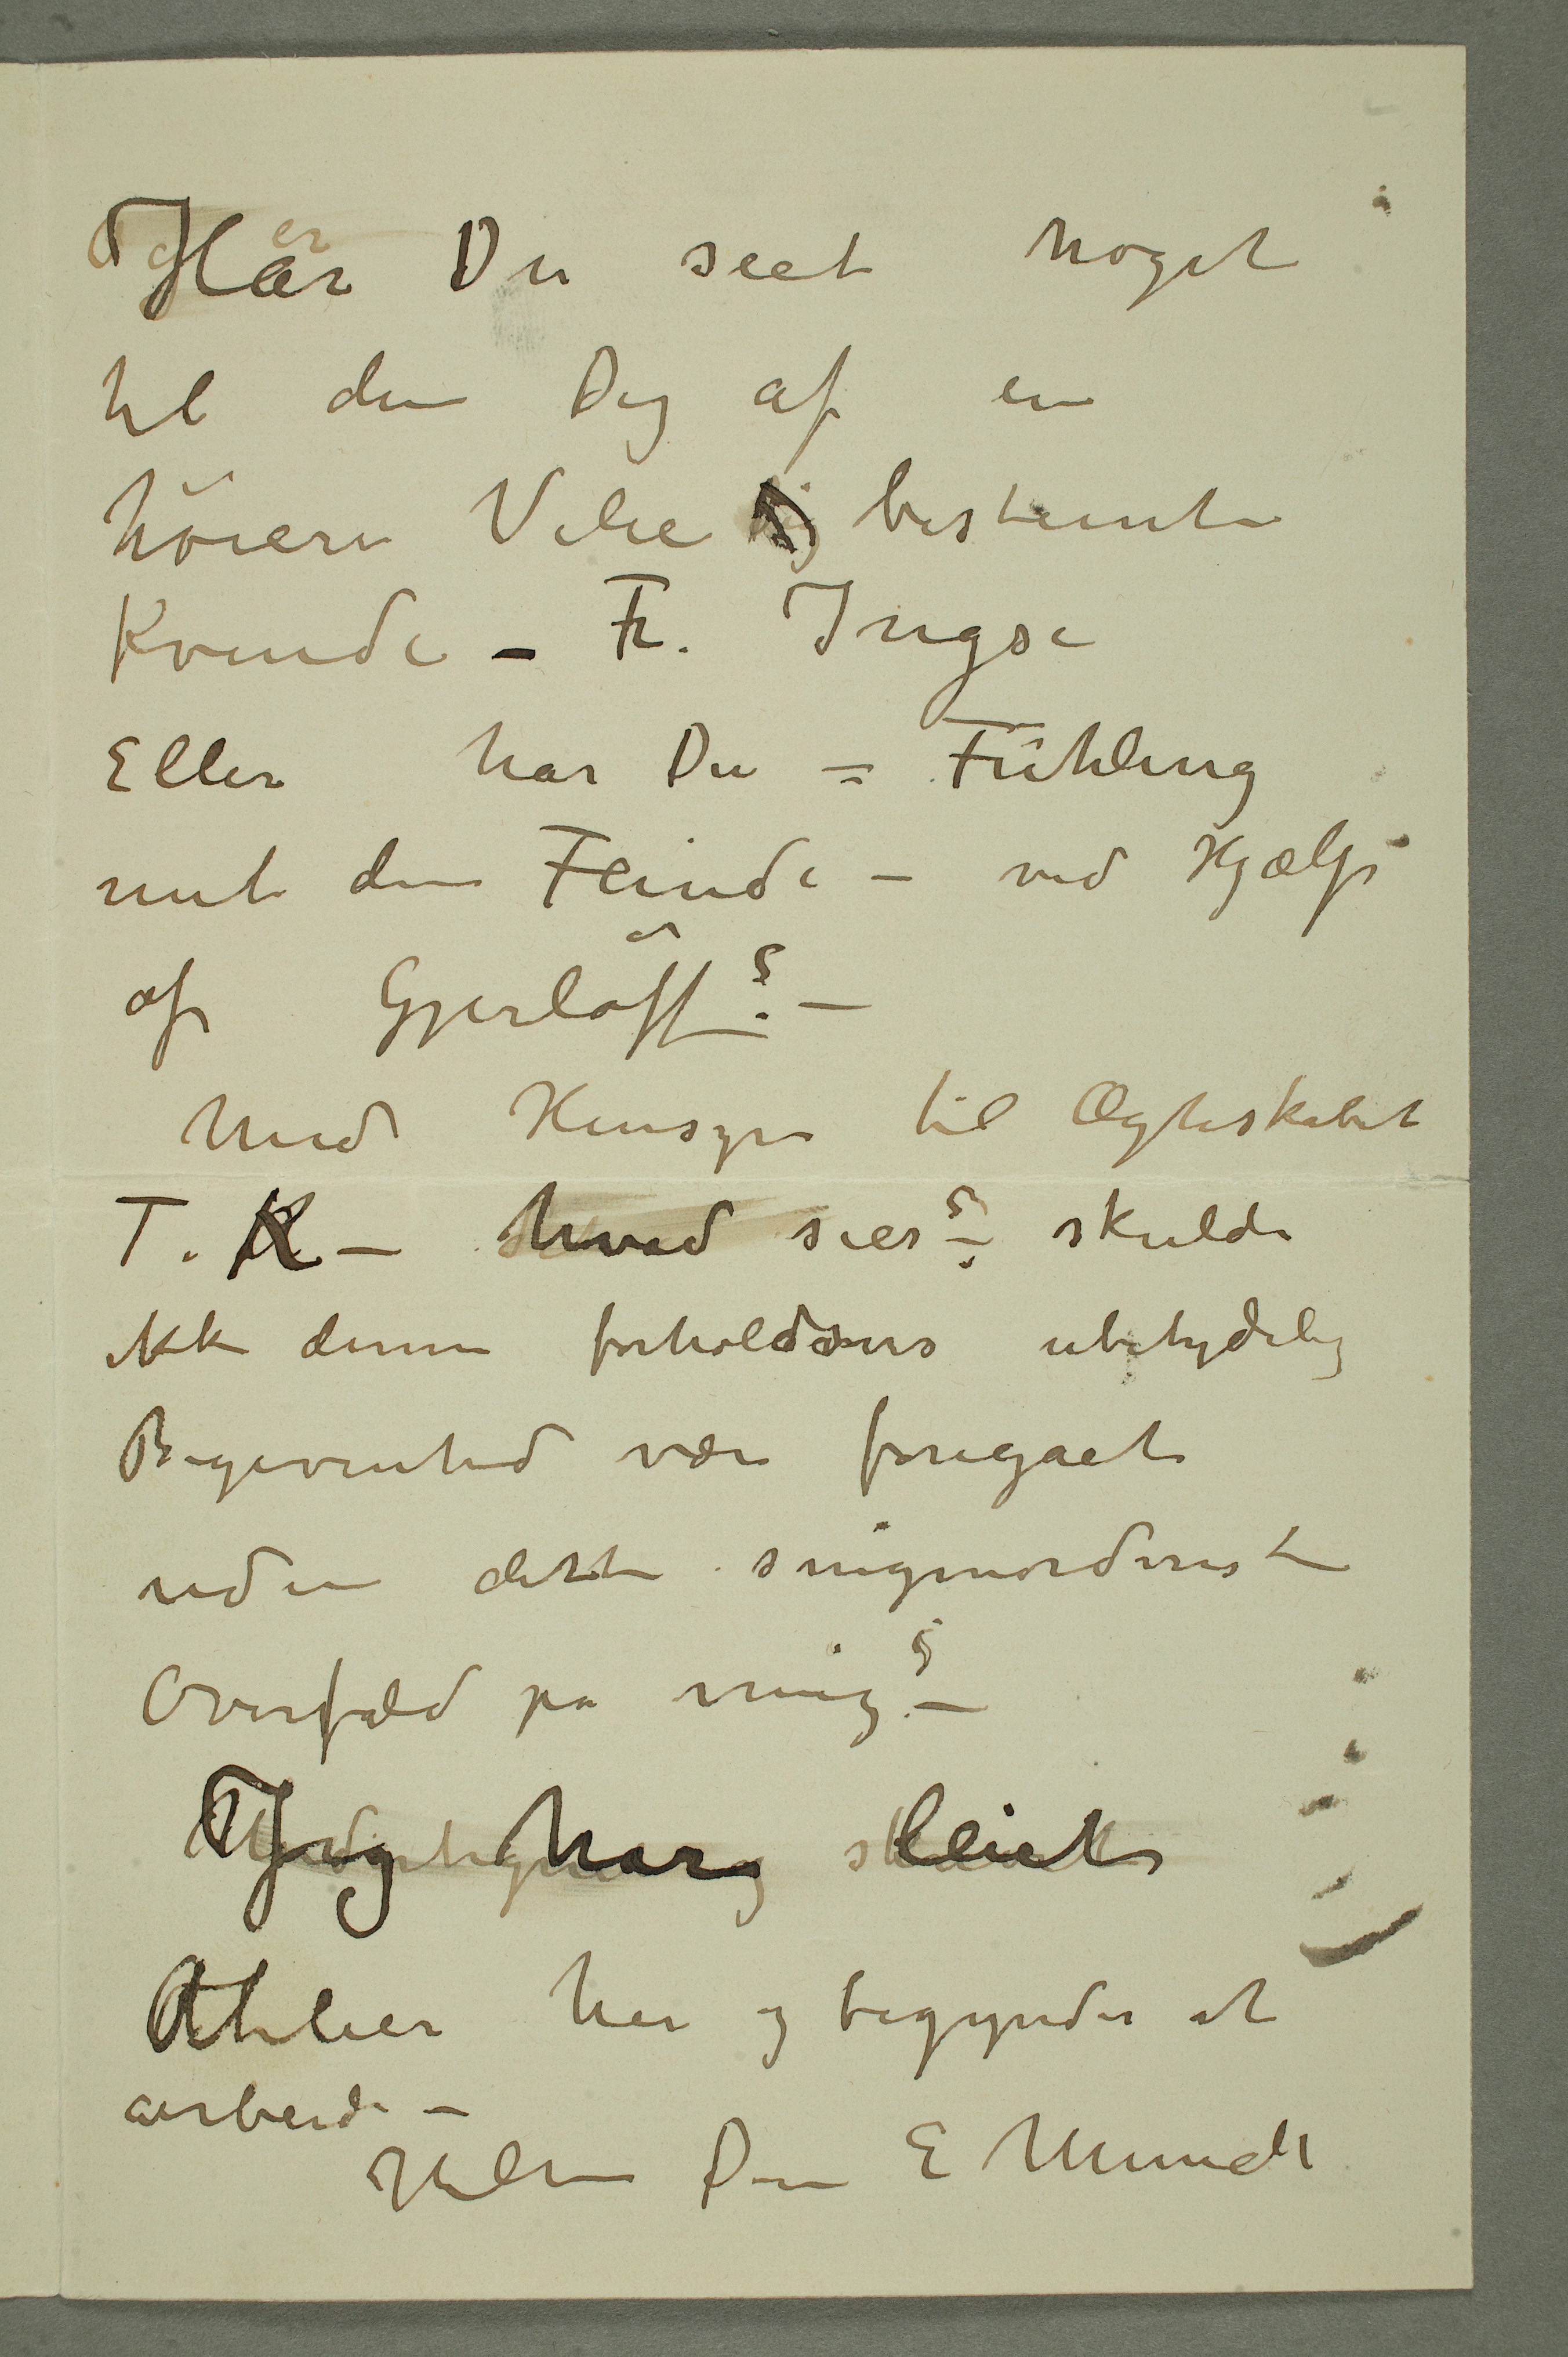 Har Du seet noget
til den Dig af en
høiere Vilie bestemte
Kvinde – Fr. Ingse
Eller har Du = Fühling
mit dem Feinde – ved Hjælp
af Gjerløff? –
Med Hensyn til Ægteskabet
T. K – hvad sies? – skulde
ikke denne forholdsvis ubetydelig
Begivenhed være foregaaet
uden dette snigmorderiske
Overfald på mig? –
Jeg har leiet
Atelier her og begynder at
arbeide –
Hilsen Din E Munch